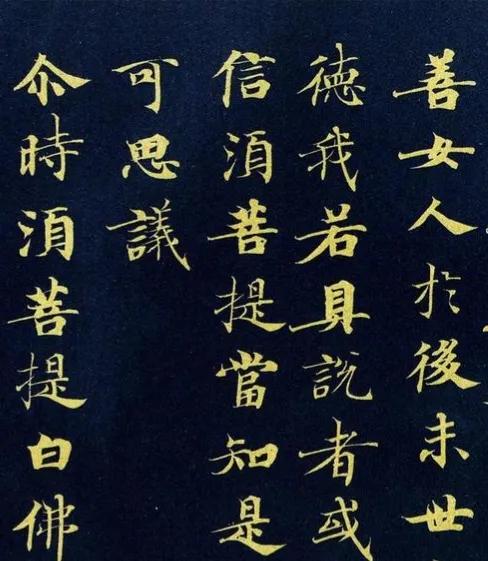 善女人於後末世
德我若具說者或
信須菩提當知是
可思議
尒時須菩提白佛